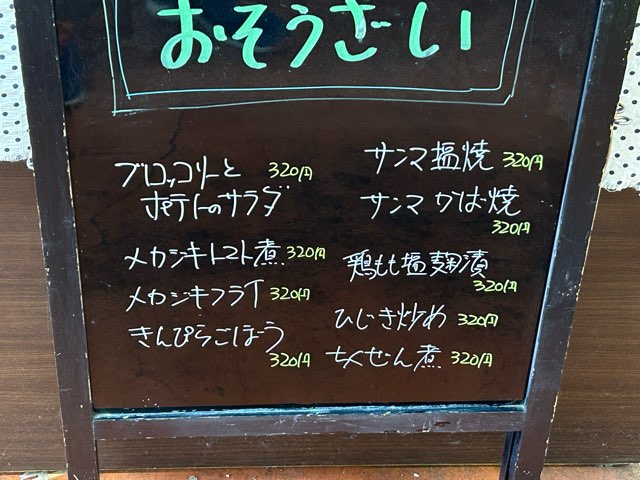 おそうざい
ブロッコリーと 320円
ポテトのサラダ
メカジキトマト煮 320円
メカジキフライ 320円
きんぴらごぼう
320円
サンマ塩焼 320円
サンマかば焼
320円
鶏もも塩麹漬
320円
ひじき炒め 320円
ちくぜん煮 320円